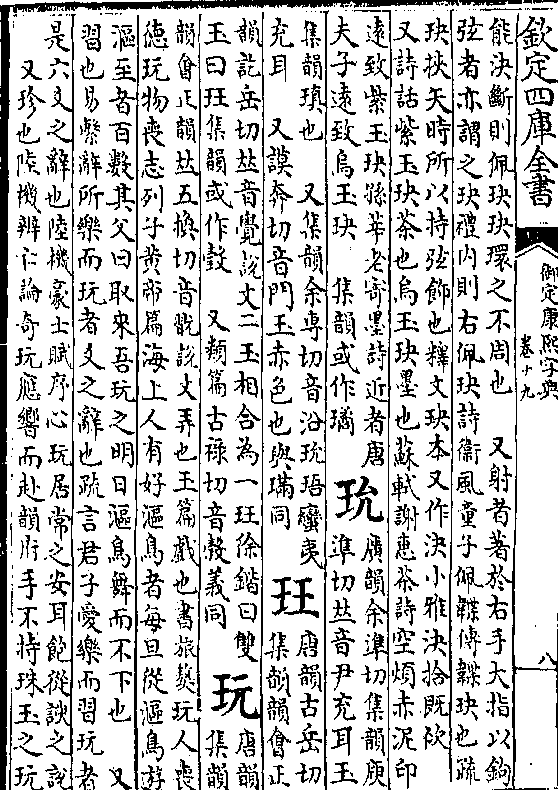 欽定四庫全書
御定康熙字典
卷十九
八
能決斷則佩玦玦環之不周也　又射者著於右手大指以鉤
弦者亦謂之玦禮內則右佩玦詩衞風童子佩韘傳韘玦也疏
玦挾矢時所以持弦飾也釋文玦本又作決小雅決拾既佽
又詩話紫玉玦茶也烏玉玦墨也蘇軾謝惠茶詩空煩赤泥印
遠致紫玉玦孫莘老寄墨詩近者唐
夫子遠致烏玉玦　集韻或作璚　玧廣韻余準切集韻庾
準切𠀤音尹充耳玉
集韻瑱也　又集韻余専切音沿玧珸蠻夷
充耳　又謨奔切音門玉赤色也與璊同　玨唐韻古岳切
集韻韻會正
韻訖岳切𠀤音覺說文二玉相合為一玨徐鍇曰雙
玉曰玨集韻或作瑴　又類篇古祿切音穀義同　玩唐韻
集韻
韻會正韻𠀤五換切音翫說文弄也玉篇戲也書旅獒玩人喪
德玩物喪志列子黃帝篇海上人有好漚鳥者每旦從漚鳥游
漚至者百數其父曰取來吾玩之明日漚鳥舞而不下也　又
習也易繫辭所樂而玩者爻之辭也疏言君子愛樂而習玩者
是六爻之辭也陸機豪士賦序心玩居常之安耳飽從諛之說
又珍也陸機辨亡論奇玩應響而赴韻府手不持珠玉之玩